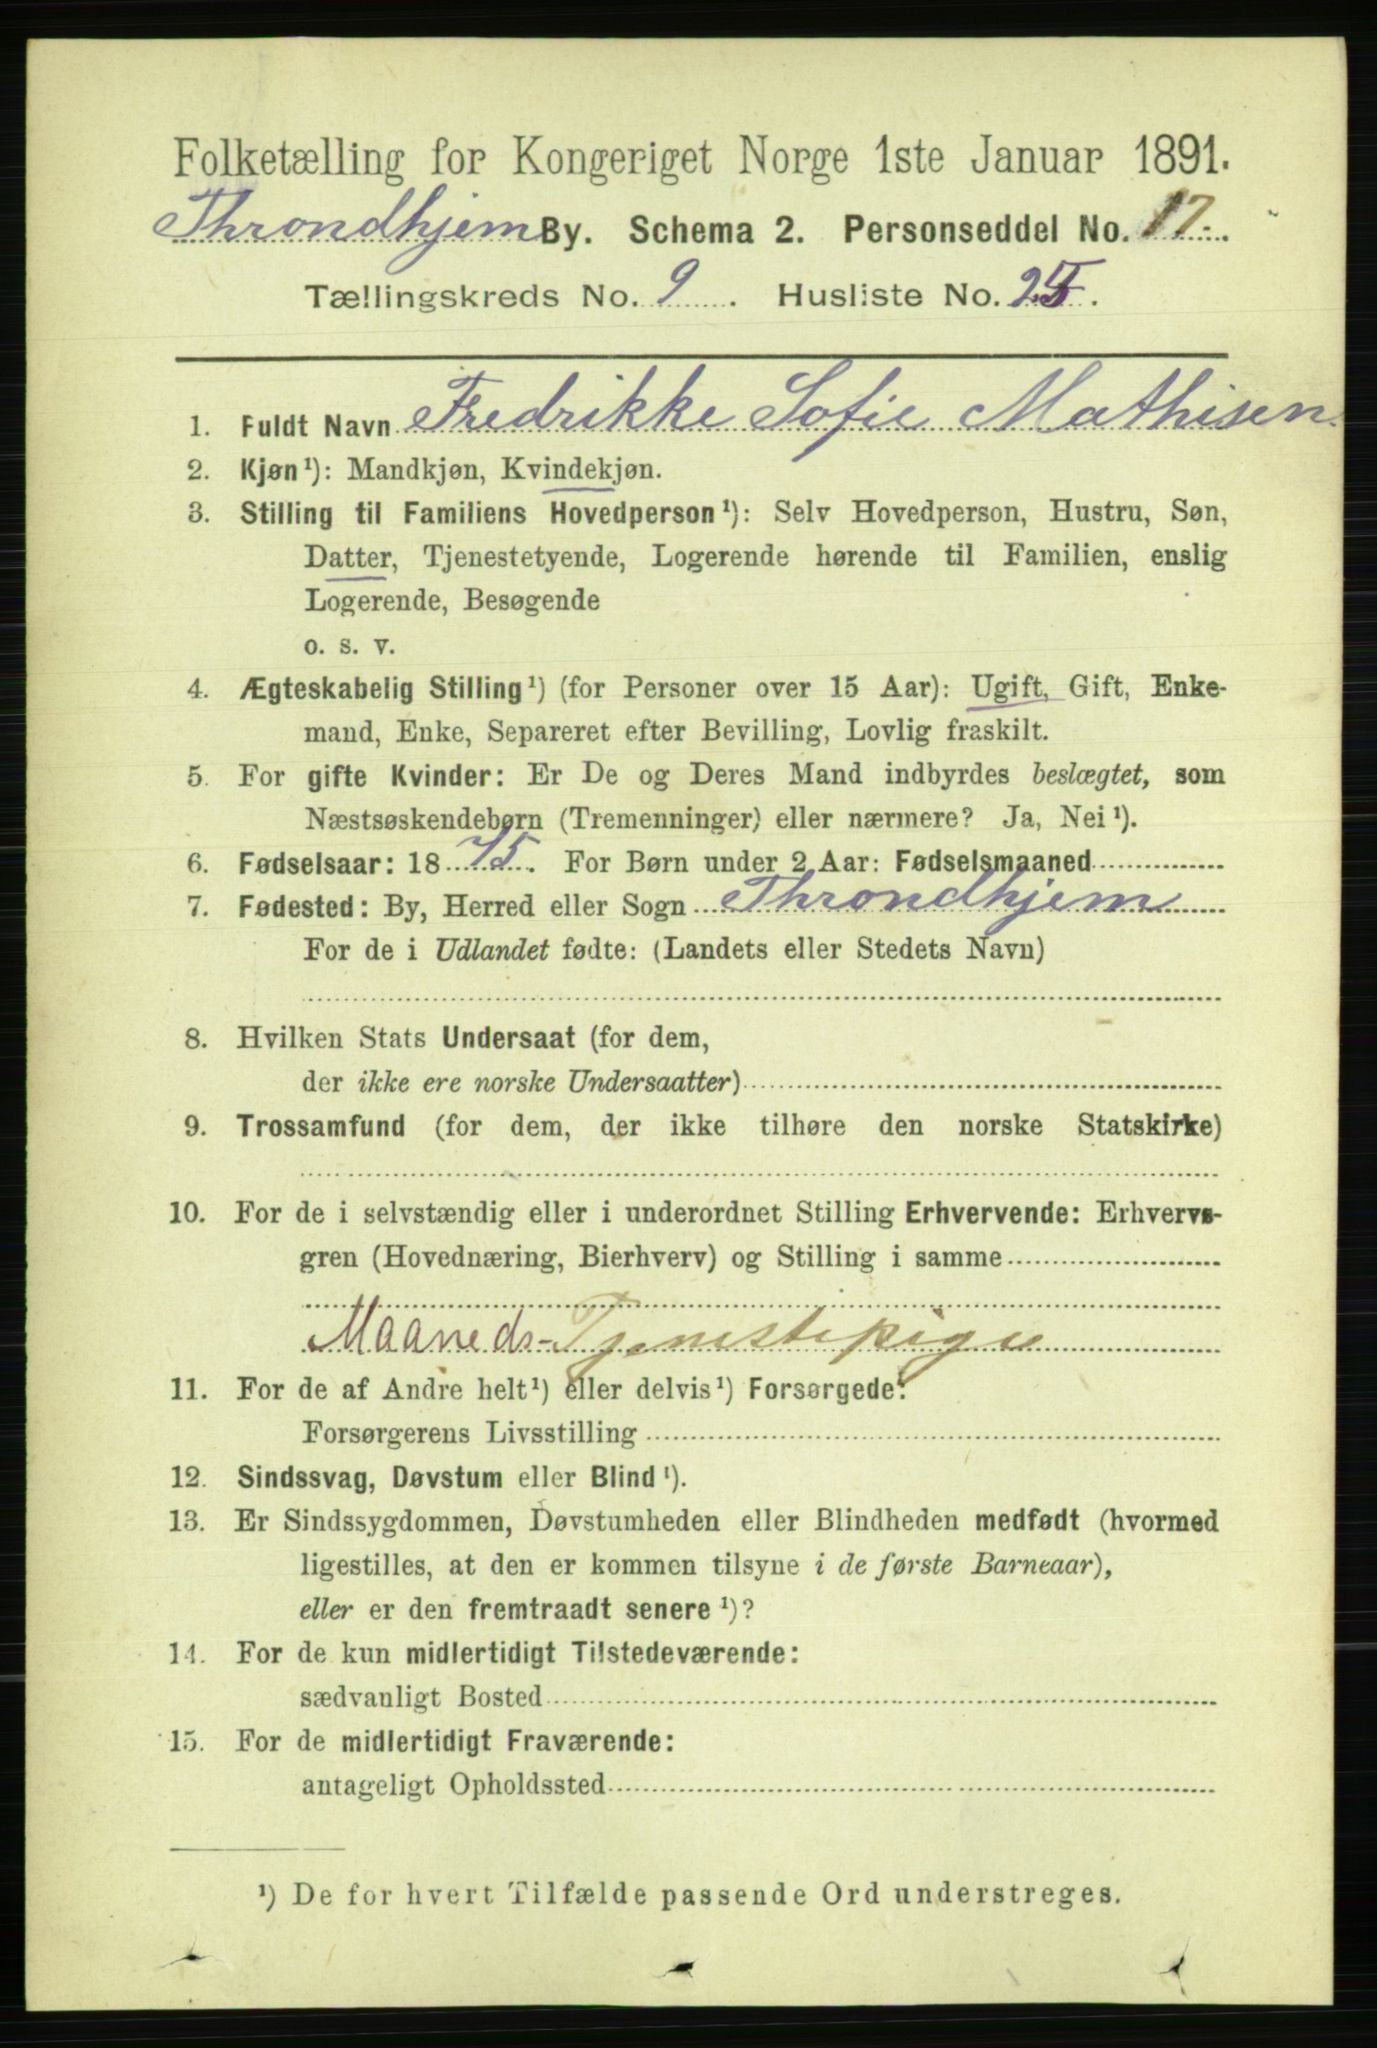 Folketælling for Kongeriget Norge 1ste Januar 1891.
Throndhjem By. Schema 2. Personseddel No. 17.
Tællingskreds No. 9. Husliste No. 25.
1. Fuldt Navn Fredrikke Sofie Mathisen.
2. Kjøn¹): Mandkjøn, Kvindekjøn.
3. Stilling til Familiens Hovedperson¹): Selv Hovedperson, Hustru, Søn,
Datter, Tjenestetyende, Logerende hørende til Familien, enslig
Logerende, Besøgende
o. s. v.
4. Ægteskabelig Stilling¹) (for Personer over 15 Aar): Ugift, Gift, Enke-
mand, Enke, Separeret efter Bevilling, Lovlig fraskilt.
5. For gifte Kvinder: Er De og Deres Mand indbyrdes beslægtet, som
Næstsøskendebørn (Tremenninger) eller nærmere? Ja, Nei¹).
6. Fødselsaar: 1875. For Børn under 2 Aar: Fødselsmaaned
7. Fødested: By, Herred eller Sogn Throndhjem
For de i Udlandet fødte: (Landets eller Stedets Navn)
8. Hvilken Stats Undersaat (for dem,
der ikke ere norske Undersaatter)
9. Trossamfund (for dem, der ikke tilhøre den norske Statskirke)
10. For de i selvstændig eller i underordnet Stilling Erhvervende: Erhvervs-
gren (Hovednæring, Bierhverv) og Stilling i samme
Maaneds-Tjenestepige
11. For de af Andre helt¹) eller delvis¹) Forsørgede:
Forsørgerens Livsstilling
12. Sindssvag, Døvstum eller Blind¹).
13. Er Sindssygdommen, Døvstumheden eller Blindheden medfødt (hvormed
ligestilles, at den er kommen tilsyne i de første Barneaar),
eller er den fremtraadt senere¹)?
14. For de kun midlertidigt Tilstedeværende:
sædvanligt Bosted
15. For de midlertidigt Fraværende:
antageligt Opholdssted
¹) De for hvert Tilfælde passende Ord understreges.